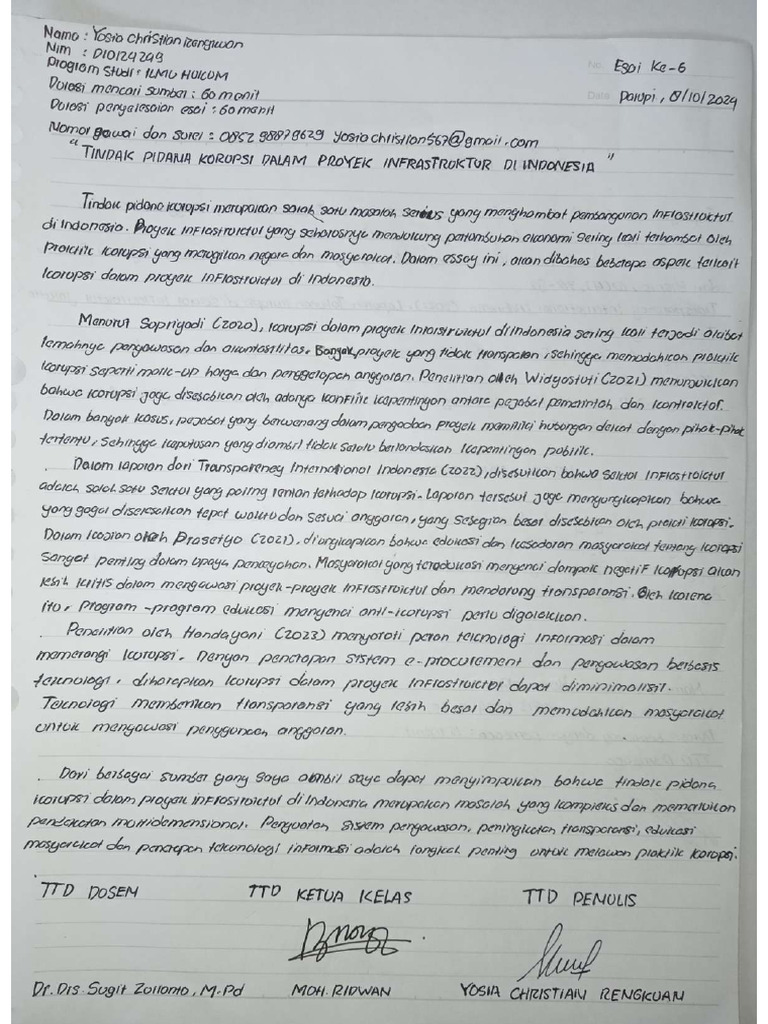 Nama : Yosia Christian Rengkuan
Nim : D10124249
Program Studi : ILMU HUKUM
Durasi mencari sumber : 60 menit
Durasi penyelesaian esai : 60 menit
Esai Ke-6
Palupi, 8/10/2024
Nomor gawai dan surel : 085298879629 yosiachristian567@gmail.com
"TINDAK PIDANA KORUPSI DALAM PROYEK INFRASTRUKTUR DI INDONESIA"
Tindak pidana korupsi merupakan salah satu masalah serius yang menghambat pembangunan infrastruktur
di Indonesia. Proyek infrastruktur yang seharusnya mendukung pertumbuhan ekonomi sering kali terhambat oleh
praktik korupsi yang merugikan negara dan masyarakat. Dalam essay ini, akan dibahas beberapa aspek terkait
korupsi dalam proyek infrastruktur di Indonesia.
Menurut Supriyadi (2020), korupsi dalam proyek infrastruktur di Indonesia sering kali terjadi akibat
lemahnya pengawasan dan akuntabilitas. Banyak proyek yang tidak transparan, sehingga memudahkan praktik
korupsi seperti mark-up harga dan penggelapan anggaran. Penelitian oleh Widyastuti (2021) menunjukkan
bahwa korupsi juga disebabkan oleh adanya konflik kepentingan antara pejabat pemerintah dan kontraktor.
Dalam banyak kasus, pejabat yang berwenang dalam pengadaan proyek memiliki hubungan dekat dengan pihak-pihak
tertentu, sehingga keputusan yang diambil tidak selalu berlandaskan kepentingan publik.
Dalam laporan dari Transparency International Indonesia (2022), disebutkan bahwa sektor infrastruktur
adalah salah satu sektor yang paling rentan terhadap korupsi. Laporan tersebut juga mengungkapkan bahwa
yang gagal diselesaikan tepat waktu dan sesuai anggaran, yang sebagian besar disebabkan oleh praktik korupsi.
Dalam kajian oleh Prasetyo (2021), diungkapkan bahwa edukasi dan kesadaran masyarakat tentang korupsi
sangat penting dalam upaya pencegahan. Masyarakat yang teredukasi mengenai dampak negatif korupsi akan
lebih kritis dalam mengawasi proyek-proyek infrastruktur dan mendorong transparansi. Oleh karena
itu, program-program edukasi mengenai anti-korupsi perlu digalakkan.
Penelitian oleh Handayani (2023) menyoroti peran teknologi informasi dalam
memerangi korupsi. Dengan penerapan sistem e-procurement dan pengawasan berbasis
teknologi, diharapkan korupsi dalam proyek infrastruktur dapat diminimalisir.
Teknologi memberikan transparansi yang lebih besar dan memudahkan masyarakat
untuk mengawasi penggunaan anggaran.
Dari berbagai sumber yang saya ambil saya dapat menyimpulkan bahwa tindak pidana
korupsi dalam proyek infrastruktur di Indonesia merupakan masalah yang kompleks dan memerlukan
pendekatan multidimensional. Penguatan sistem pengawasan, peningkatan transparansi, edukasi
masyarakat dan penerapan teknologi informasi adalah langkah penting untuk melawan praktik korupsi.
TTD DOSEM TTD KETUA KELAS TTD PENULIS
Dr. Drs. Sugit Zulianto, M.Pd MOH. RIDWAN YOSIA CHRISTIAN RENGKUAN